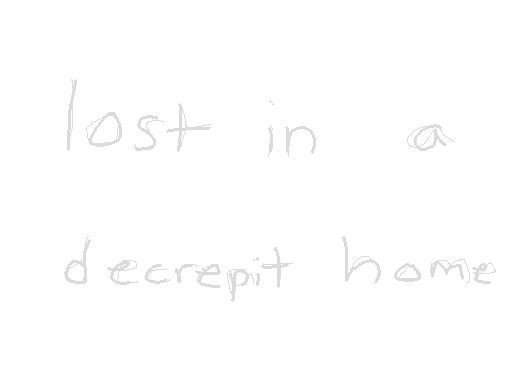 lost in a
decrepit home